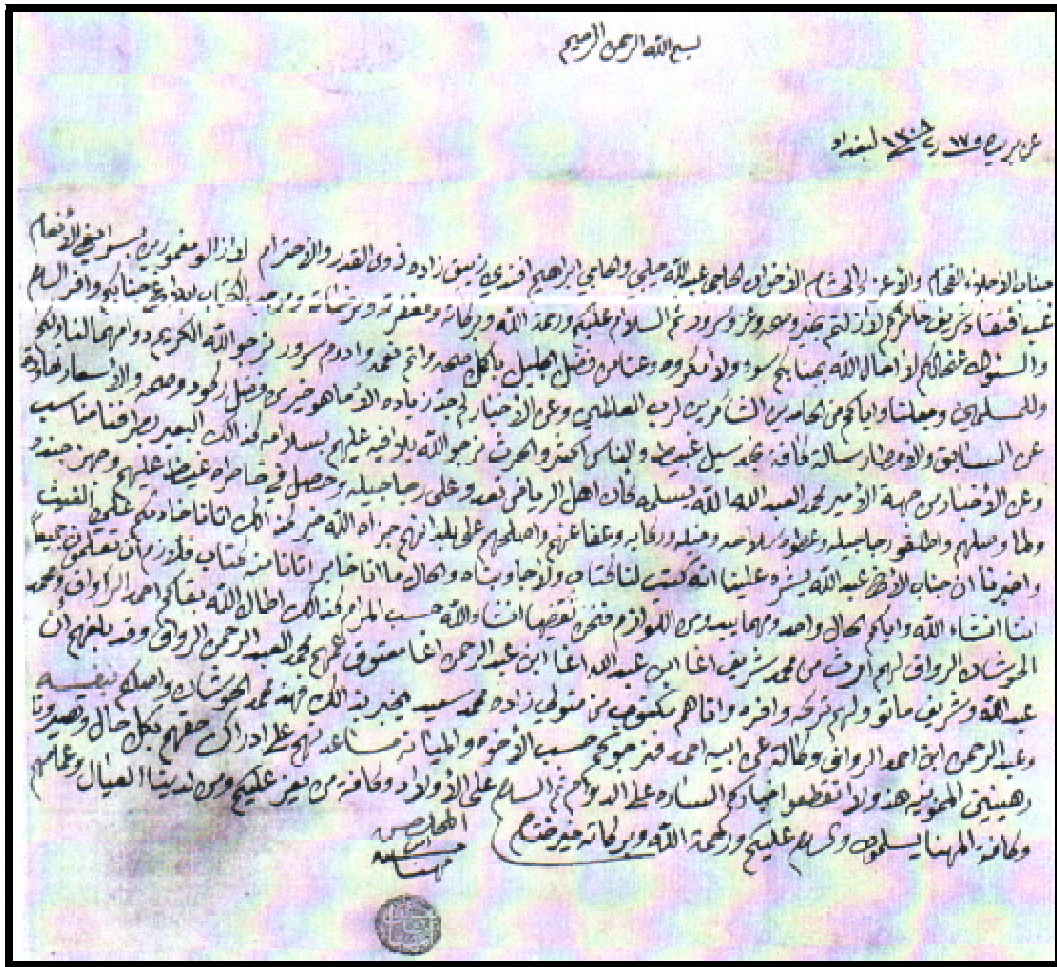 بسم الله الرحمن الرحيم
عن بريده ١٧ ١٣٠٨ لبغداد
جناب الأجلاء الفخام والأعزاء الحشام الأخوان الحاجي عبدالله جلبي والحاجي ابراهيم افندي زاده ذوي القدر والاحترام لازالو مغمورين الأنعام
غب افتقاد شريف خاطركم لازلتم بخير وعز وسرور ثم السلام عليكم ورحمة الله وبركاته ومغفرته ومرضاته جنابكم وافر السلام
والسؤال عنكم لا أصال الله بجنابكم سوء ولا مكروه وعنا من فضل الجليل بأكمل صحه واتم نعمه وادوم سرور نرجو الله الكريم دوامهما لنا ولكم
وللمسلمين وجعلنا واياكم من الحامدين الشاكرين لرب العالمين وعن الأخبار لم جد زياده الا ما هو خير من فضل ركود وصحه والأسعار
عن السابق والأمطار سالة كافة نجد سيل غبيط والناس اكثرو الحرث نرجو الله يوافيه عليهم بسلامه كذالك البعد بطرفنا مناسب
وعن الأخبار من جهة الأمير محمد العبد الله الله يسلمه كان اهل الرياض تعدو على رجاجيله وحصل في خاطره غيض عليهم وجهز جنده
ولما وصلهم واطلقو رجاجيله وعطوه سلاحه وخيله وركابه وعفا عنهم واصلحهم على بلدانهم جزاه الله خير كذالك اتانا خادمكم
واخبرنا ان جناب الأخ عبد الله يشره علينا انه كتب لنا كتاب ولا جاوبناه والحال ما انا خابر اتانا منه كتاب فلازم ان تعلمون جميعاً
اننا انشاء الله واياكم بحال واحد ومهما يبدو من اللوازم فنحن نقضيها انشاء الله حسب المرام كذالك اطال الله بقاكم احمد الرواق ومحمد
الرواق لهم أرث من محمد شريف اغا ابن عبد الله اغا ابن عبد الرحمن اغا معتوق عمهم محمد العبد الرحمن الرواق وقد بلغهم أن
عبد الله وشريف ماتو ولهم تركه وافره واتاهم مكتوب من متولي زاده محمد سعيد يخبر بذالك فهذا محمد واصلكم بنفسه
وعبد الرحمن ابن احمد الرواق وكالة عن ابيه احمد فنرجو منكم حسب الأخوه والميانة مساعدتهم على ادراك حقهم بكل حال وتصيرون
ممنونين هذا ولا تقطعوا اخباركم الساره على الدوام ثم السلام على الأولاد وكافة من يعز عليكم ومن لدينا العيال
وكافة المهنا يسلمون والسلام عليكم ورحمة الله وبركاته خير ختام
المخلص
مهنا